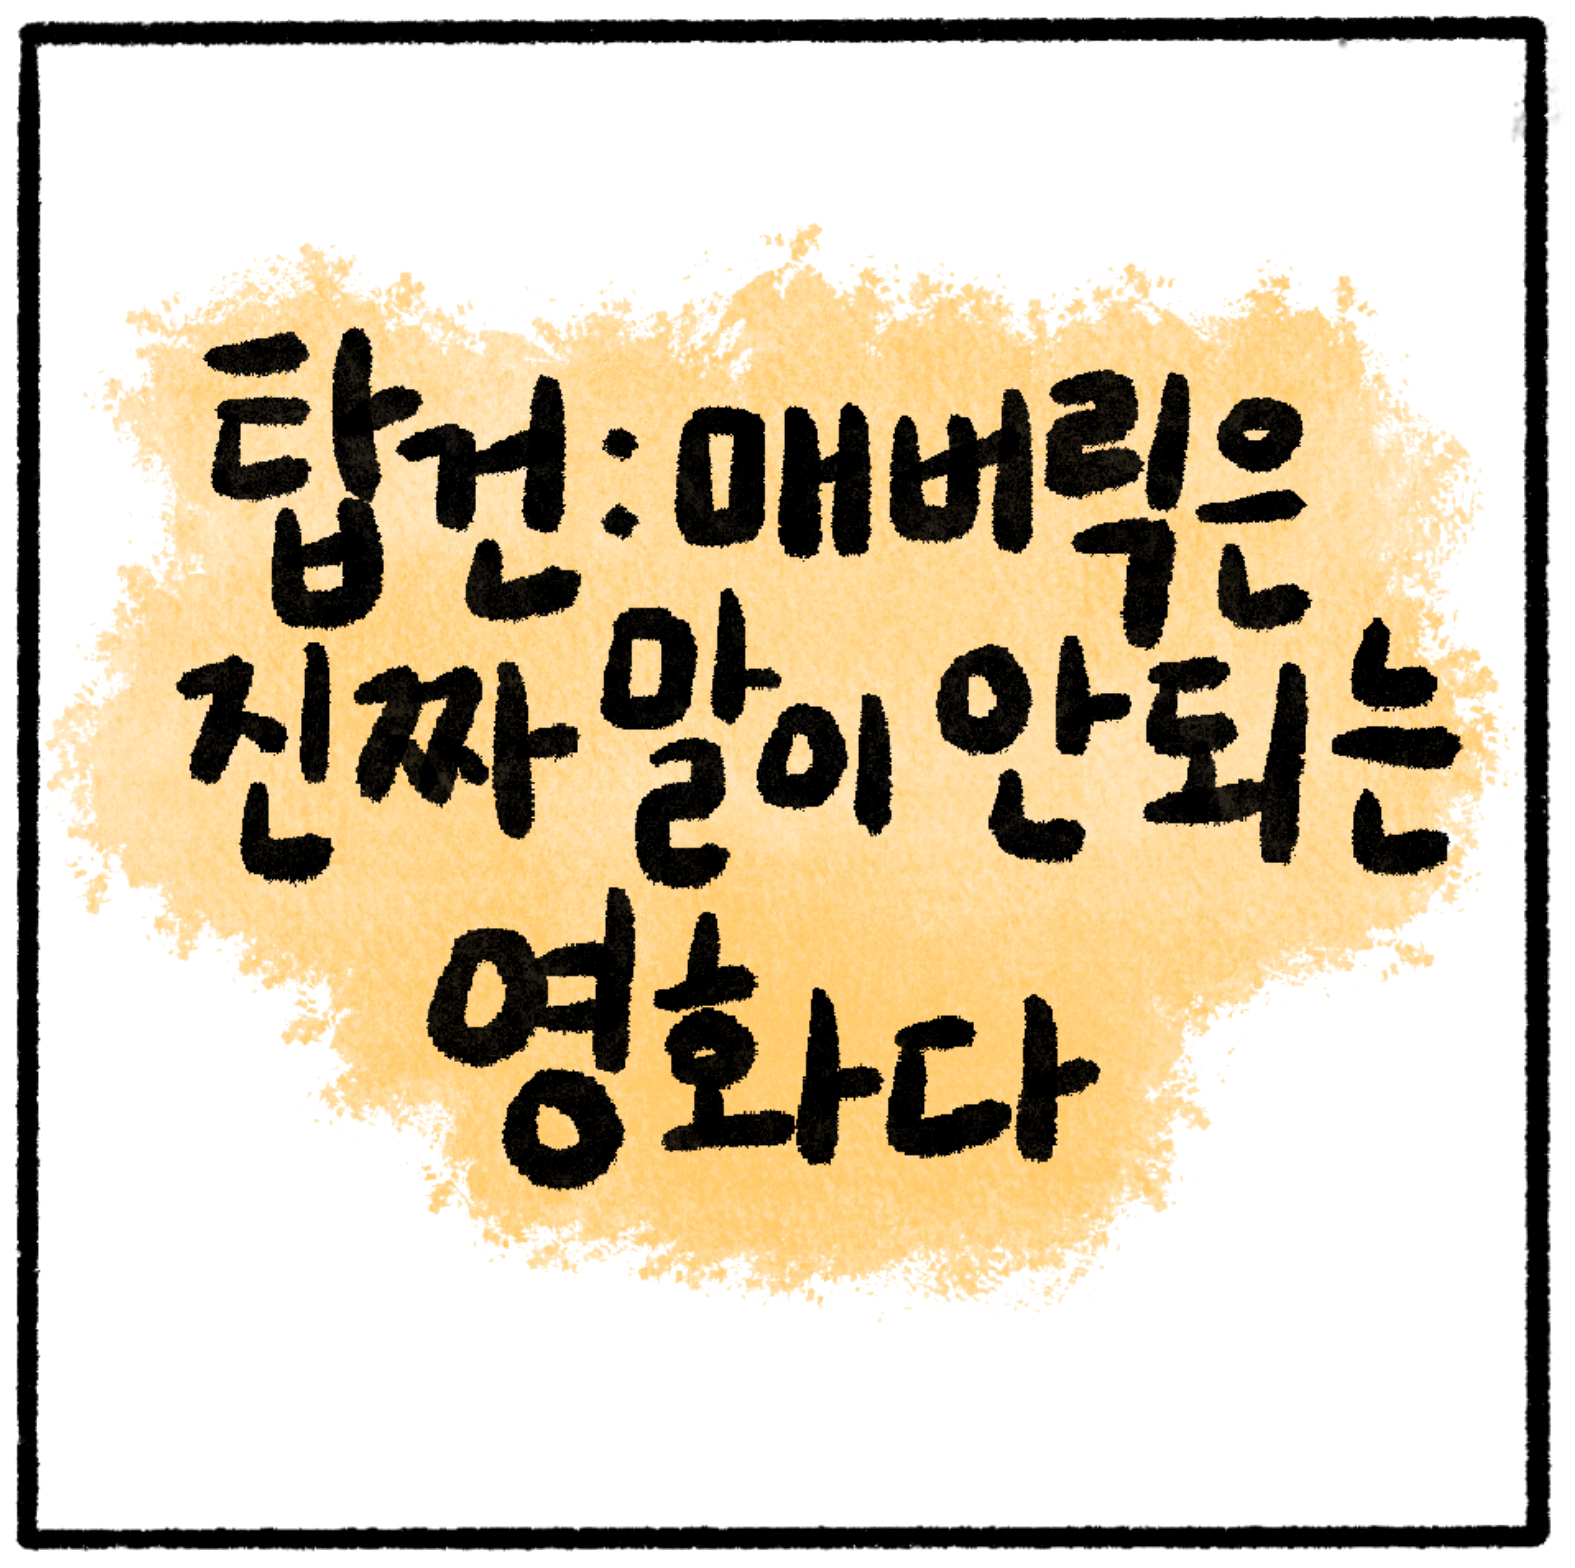 탑건:매버릭은
진짜 말이 안되는
영화다